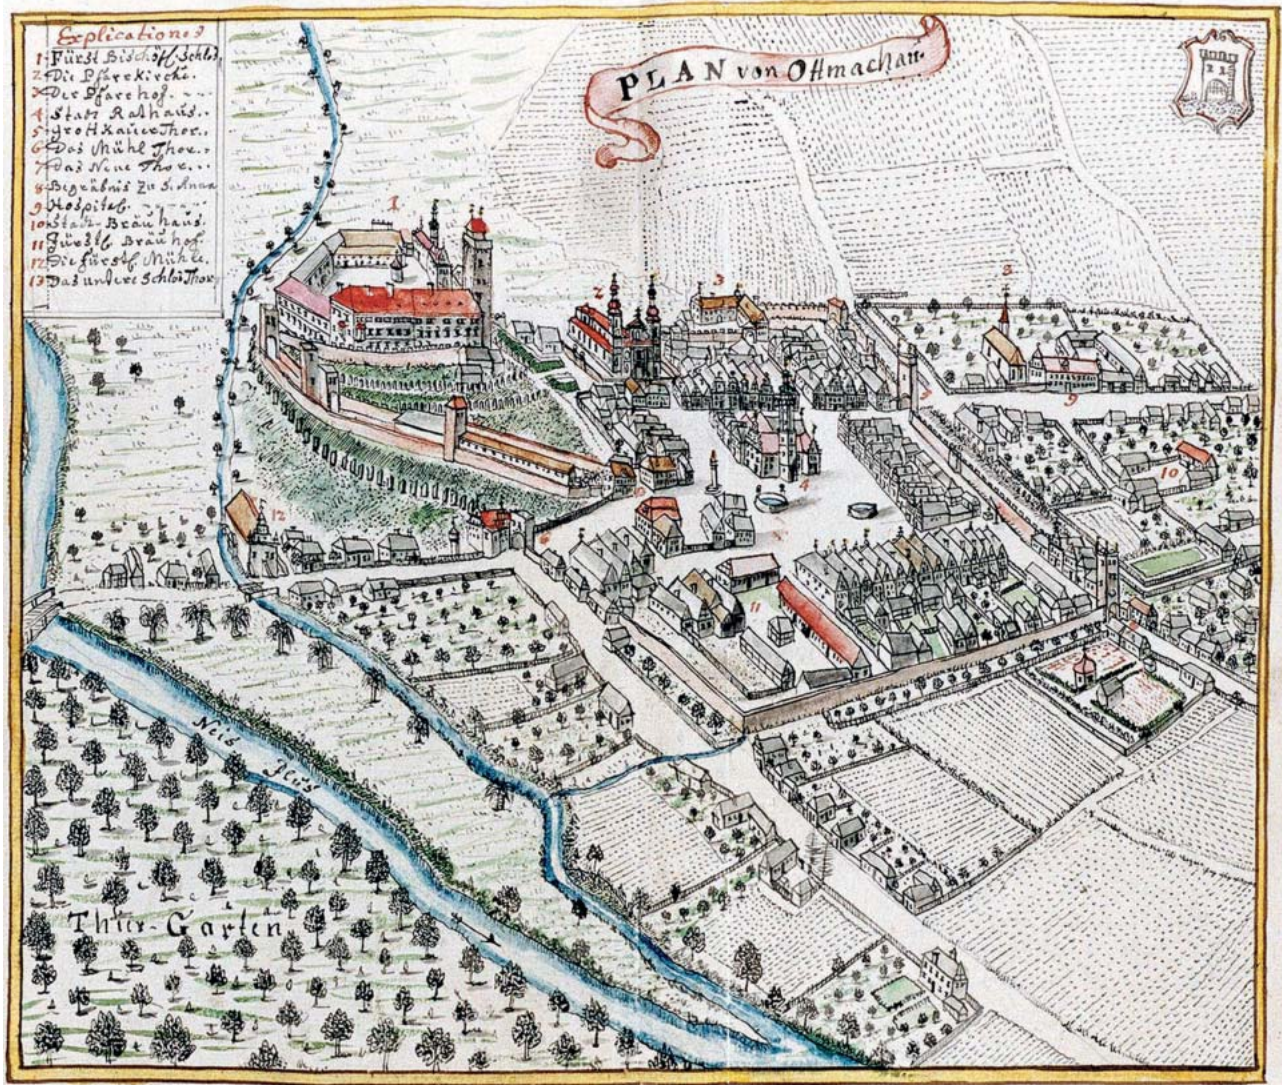 Explicationes
1. Fürst Bischöfl. Schlos,
2. Die Pfarrkirche.
3. Der Pfarrhof.
4. Stadt Rathaus.
5. grottkauer Thor.
6. Das Mühl Thor.
7. Das Neue Thor.
8. Begräbnis zu S. Anna
9. Hospital.
10. Stadt Bräuhaus.
11. Fürstl. Bräuhof.
12. Die fürstl. Mühle.
13. Das undere Schlos Thor
PLAN von Ottmachau.
1
2
3
8
7
9
10
4
12
6
11
5
Neis
fluss
Thier-Garten